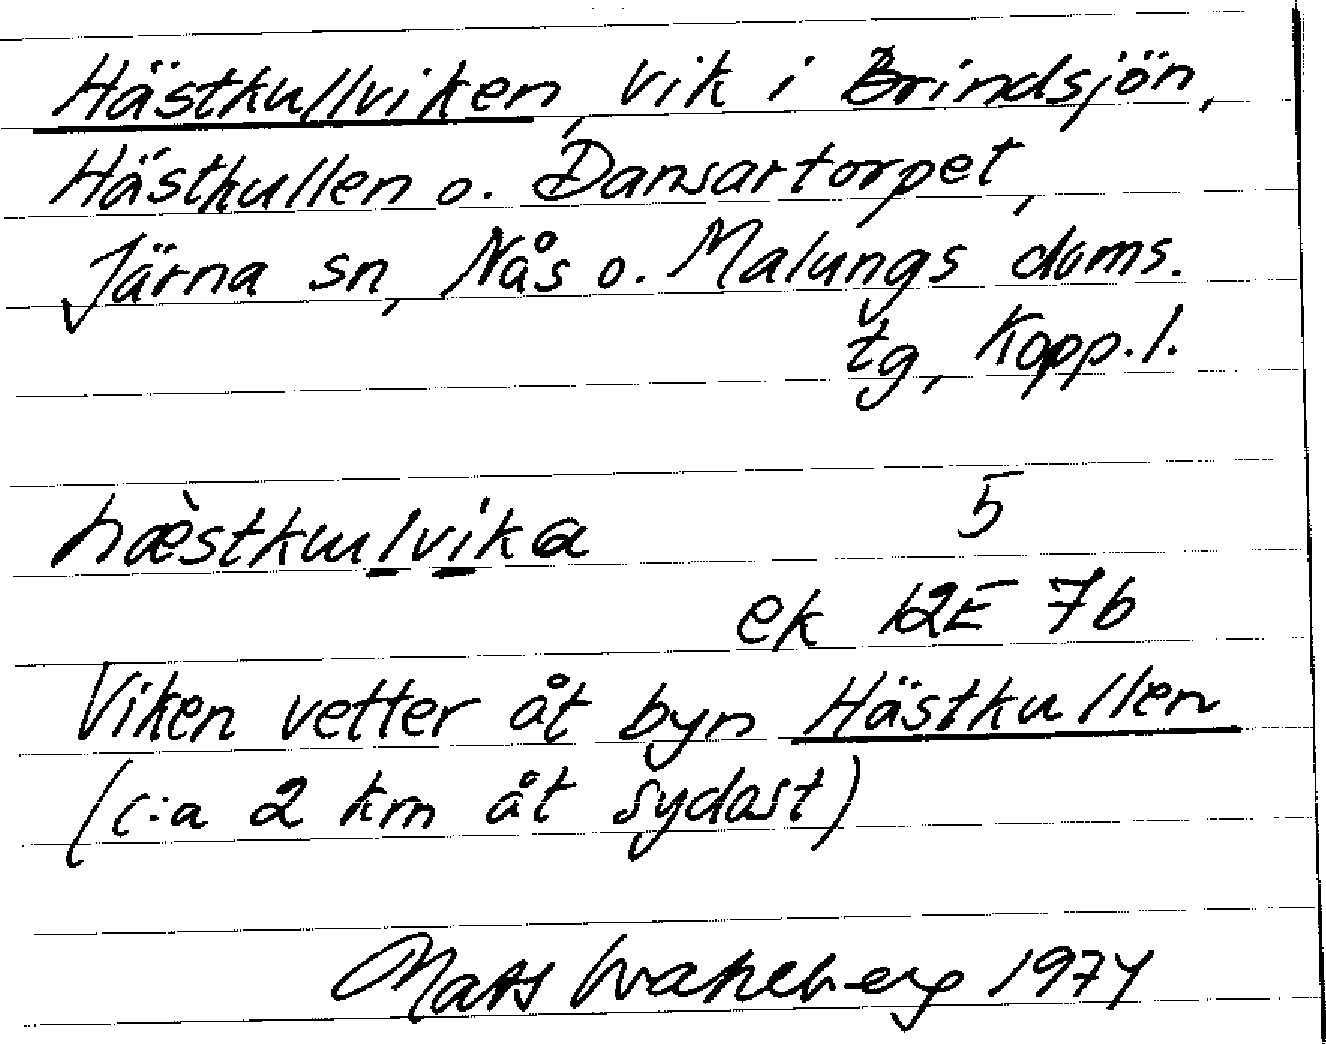 Hästkullviken, vik i Brindsjön,
Hästkullen o. Dansartorpet,
Järna sn, Nås o. Malungs doms.
tg, Kopp. l.
hæ̀stkulvika 5
ek 12E 7b
Viken vetter åt byn Hästkullen
(c:a 2 km åt sydost)
Mats 1974